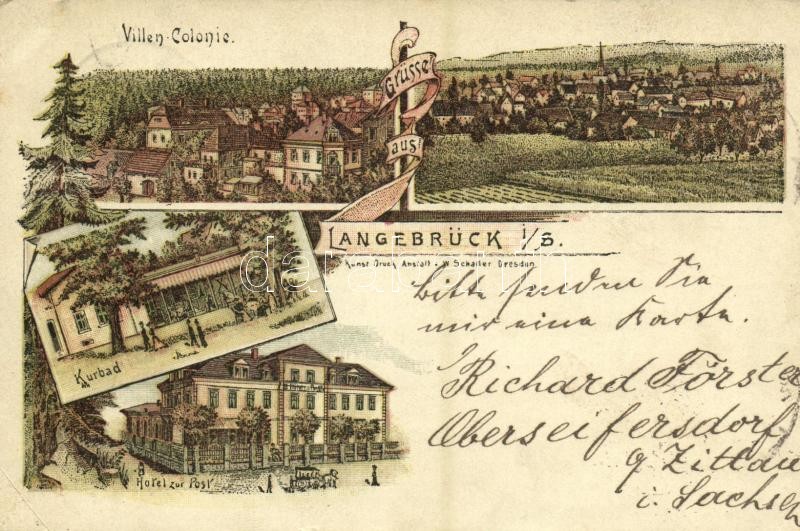 Villen-Colonie.
Grüsse
aus!
LANGEBRÜCK i/S.
Kunst Druck Anstalt v. W. Schaller Dresden.
Kurbad
Hotel zur Post
Bitte senden Sie
mir eine Karte.
Richard Förster
Oberseifersdorf
b/ Zittau
i. Sachsen
darabanth